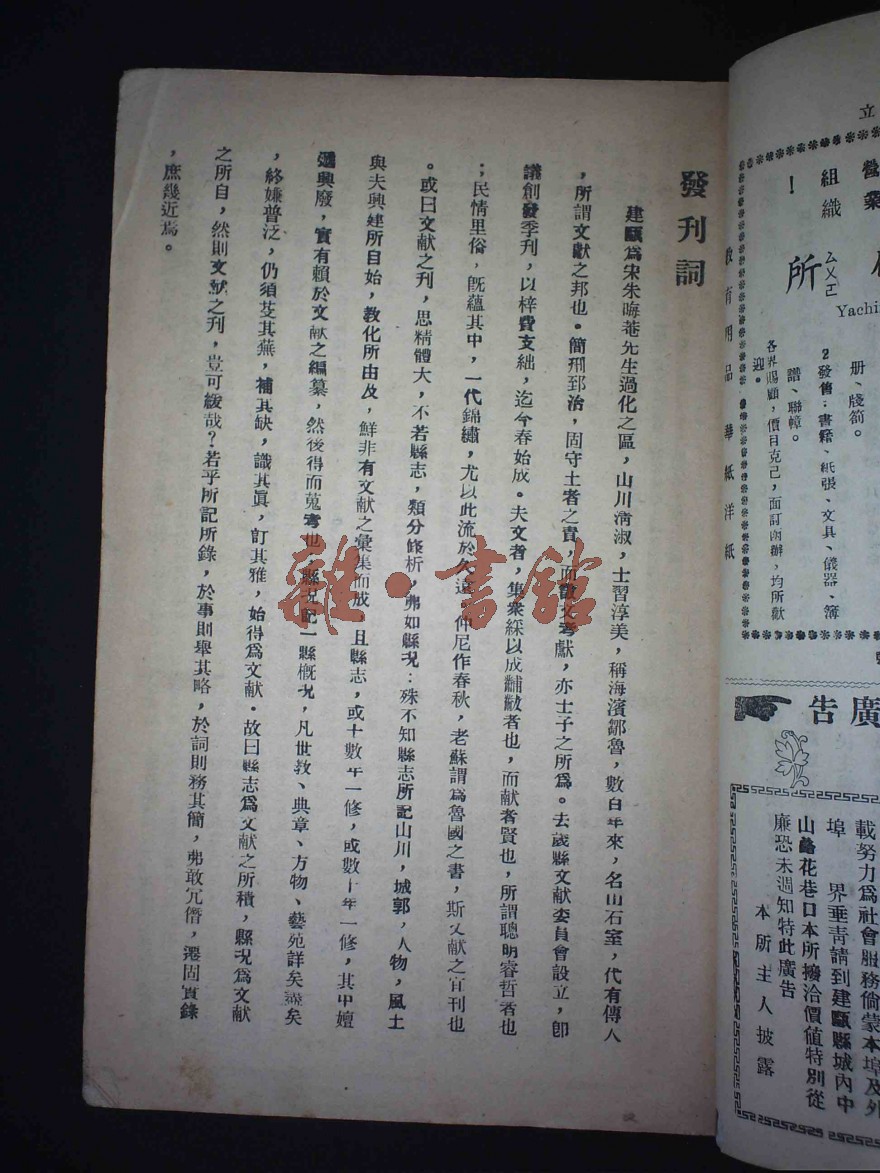 發刊詞
建甌爲宋朱晦菴先生過化之區，山川淸淑，士習淳美，稱海濱鄒魯，數百年來，名山石室，代有傳人
，所謂文獻之邦也。簡刑郅治，固守土者之責，而徵文考獻，亦士子之所爲。去歲縣文献委員會設立，卽
議創發季刊，以梓費支絀，迄今春始成。夫文者，集衆綵以成黼黻者也，而献者賢也，所謂聰明睿哲者也
；民情里俗，旣蘊其中，一代錦繡，尤以此流於久遠，仲尼作春秋，老蘇謂爲魯國之書，斯文献之宜刊也
。或曰文献之刊，思精體大，不若縣志，類分條析，弗如縣况：殊不知縣志所記山川，城郭，人物，風土
與夫興建所自始，敎化所由及，鮮非有文献之彙集而成，且縣志，或十數年一修，或數十年一修，其中嬗
遞興廢，實有賴於文献之編纂，然後得而蒐考也，縣况記一縣槪况，凡世敎、典章、方物、藝苑詳矣盡矣
，終嫌普泛，仍須芟其蕪，補其缺，識其眞，訂其雅，始得爲文献。故曰縣志爲文献之所積，縣况爲文献
之所自，然則文献之刊，豈可緩哉？若乎所記所錄，於事則舉其略，於詞則務其簡，弗敢冗僭，遷固實錄
，庶幾近焉。
雜·書館
立
營業
組織
！
所
ㄙㄨㄛ
Yachi
册、牋箚。
2發售：書籍、紙張、文具、儀器、簿
譜、聯幛。
各界賜顧，價目克己，面訂函辦，均所歡
迎。
敎育用品
華紙洋紙
廣告
載努力爲社會服務倘蒙本埠及外
埠　界垂靑請到建甌縣城內中
山路花巷口本所接洽價値特別從
廉恐未週知特此廣告
本所主人披露